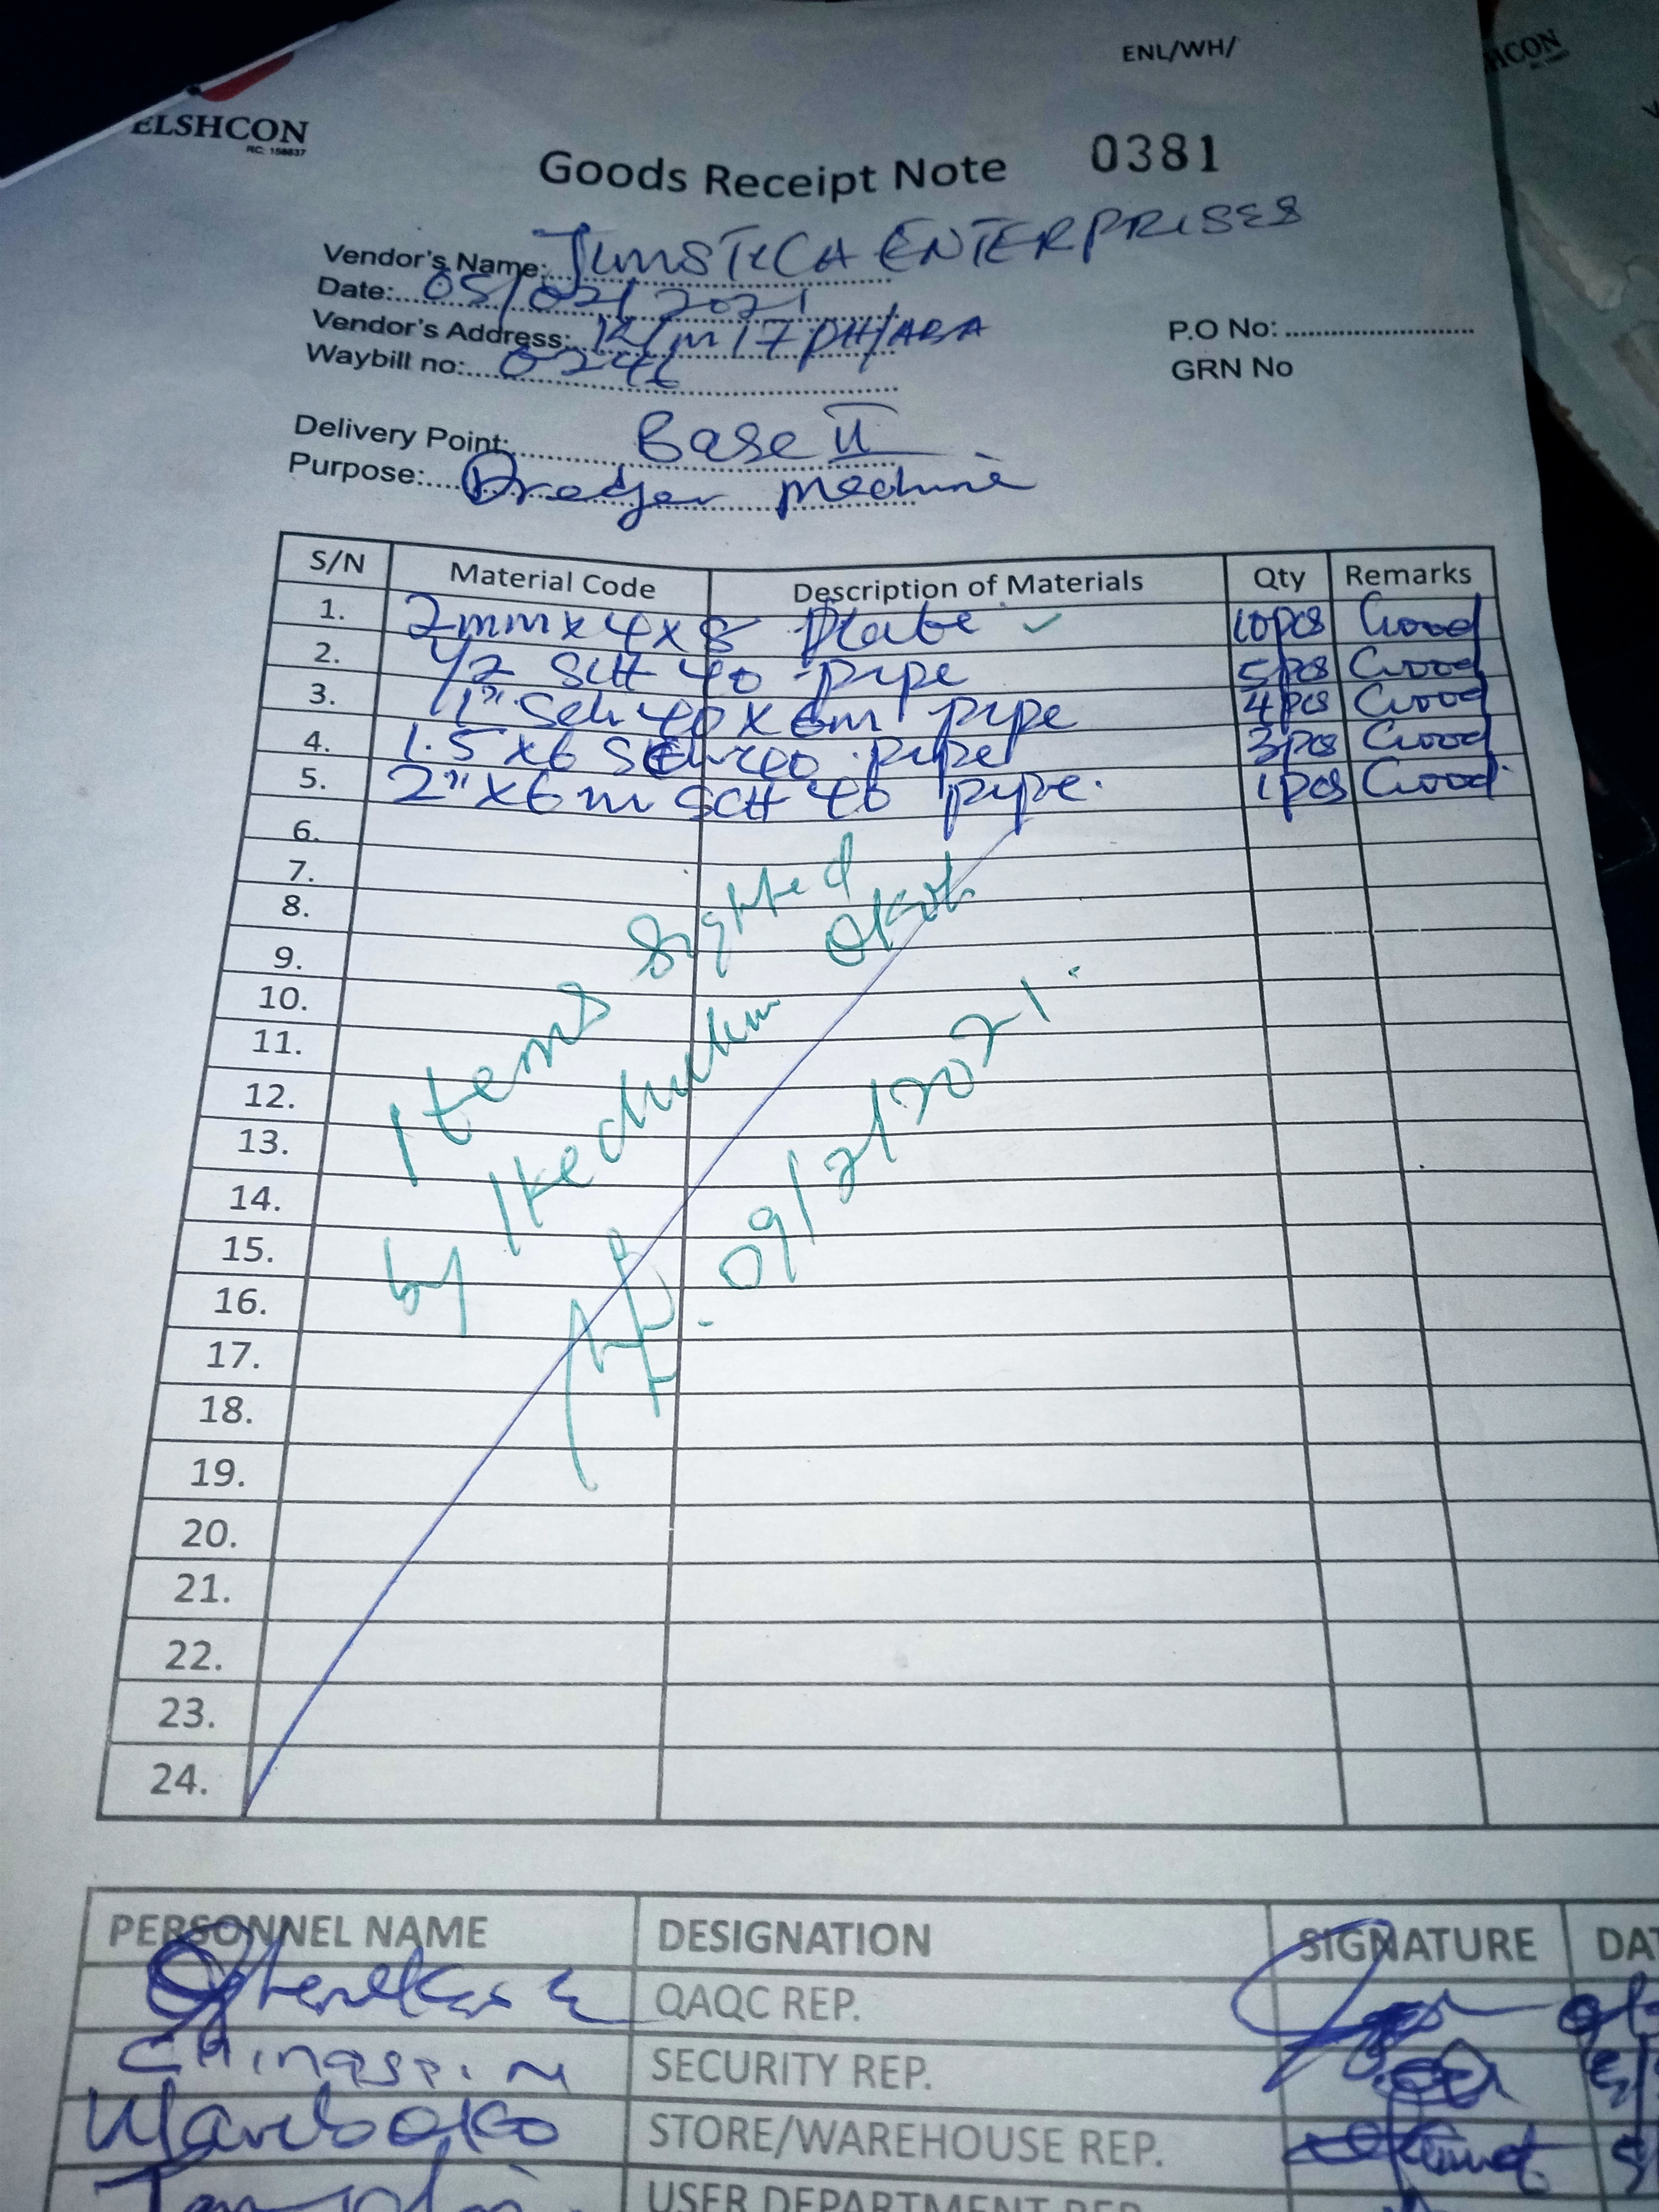 ENL/WH/
HCON
ELSHCON
RC: 158837
Goods Receipt Note 0381
Vendor's Name: ENTERPRISES
Date: 05/02/2021
Vendor's Address: 12/m17 PH/ABA
P.O No:
Waybill no: 0246
GRN No
Delivery Point: Base II
Purpose: Dredger machine
S/N Material Code Description of Materials Qty Remarks
1. 2mm x 4 x 8 Plate ✓ 10pcs Good
2. 1/2 SCH 40 pipe 5pcs Good
3. 1" Sch 40 x 6m pipe 4pcs Good
4. 1.5 x 6 Sch 40 pipe 3pcs Good
5. 2" x 6m SCH 40 pipe. 1pcs Good
6.
7.
8.
9.
10.
11.
12.
13.
14.
15.
16.
17.
18.
19.
20.
21.
22.
23.
24.
Items Sighted
by Ikechukwu Okoh
09/2/2021.
PERSONNEL NAME DESIGNATION SIGNATURE DAT
QAQC REP.
SECURITY REP.
STORE/WAREHOUSE REP.
USER DEPARTMENT REP